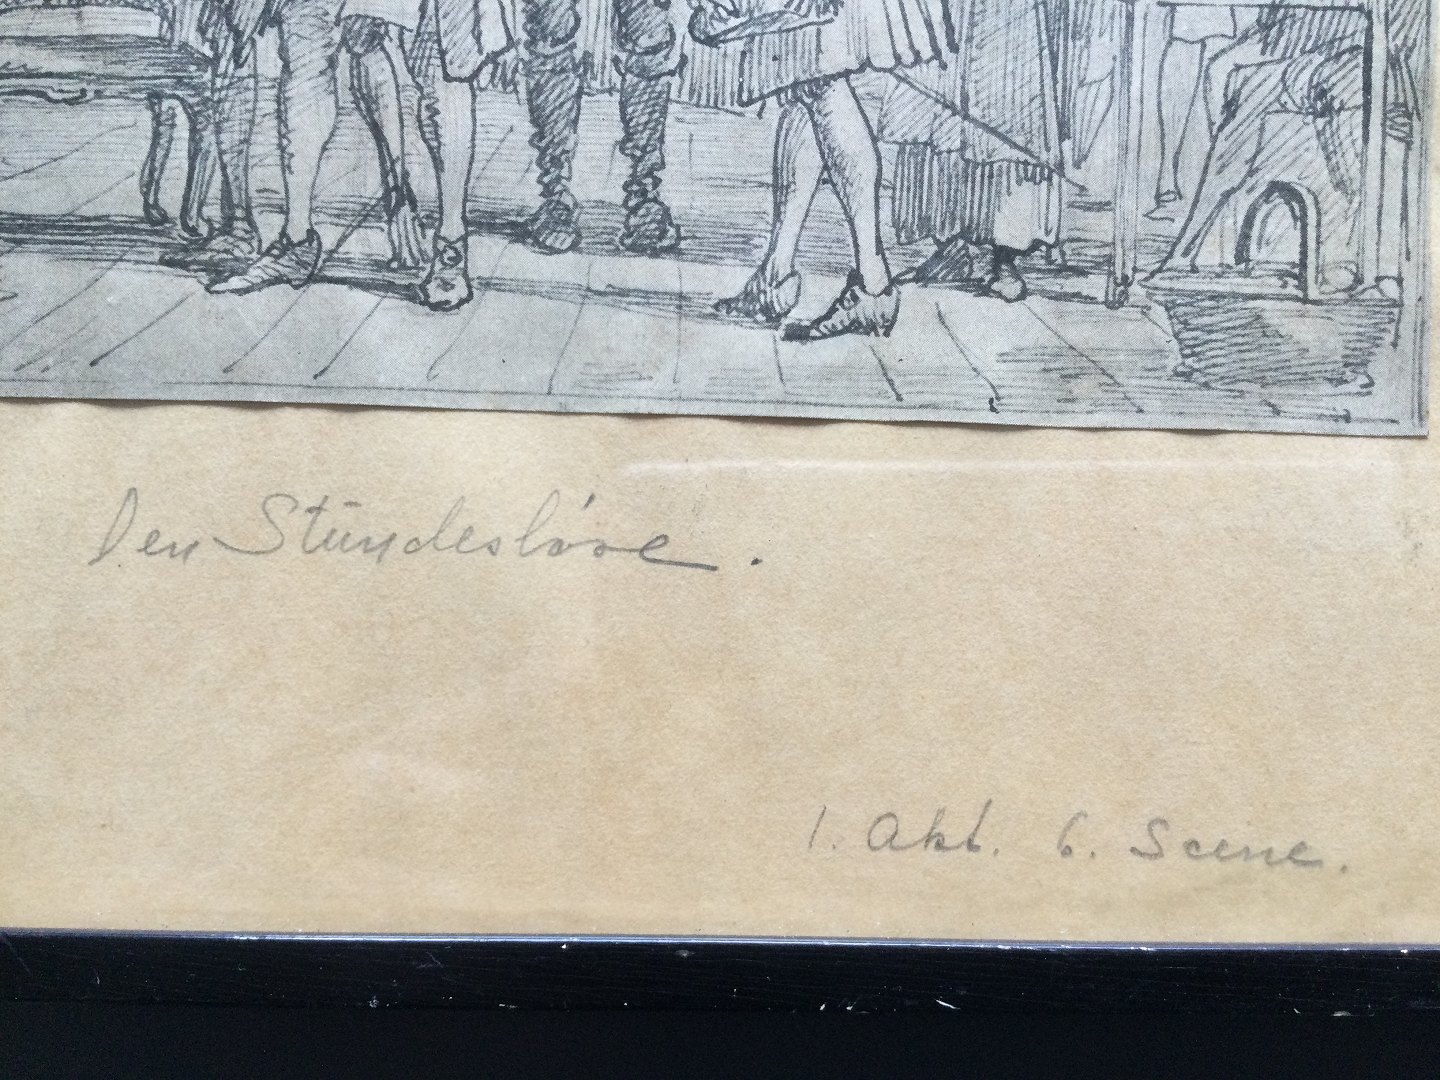 Den Stundesløse.
1. Akt. 6. Scene.